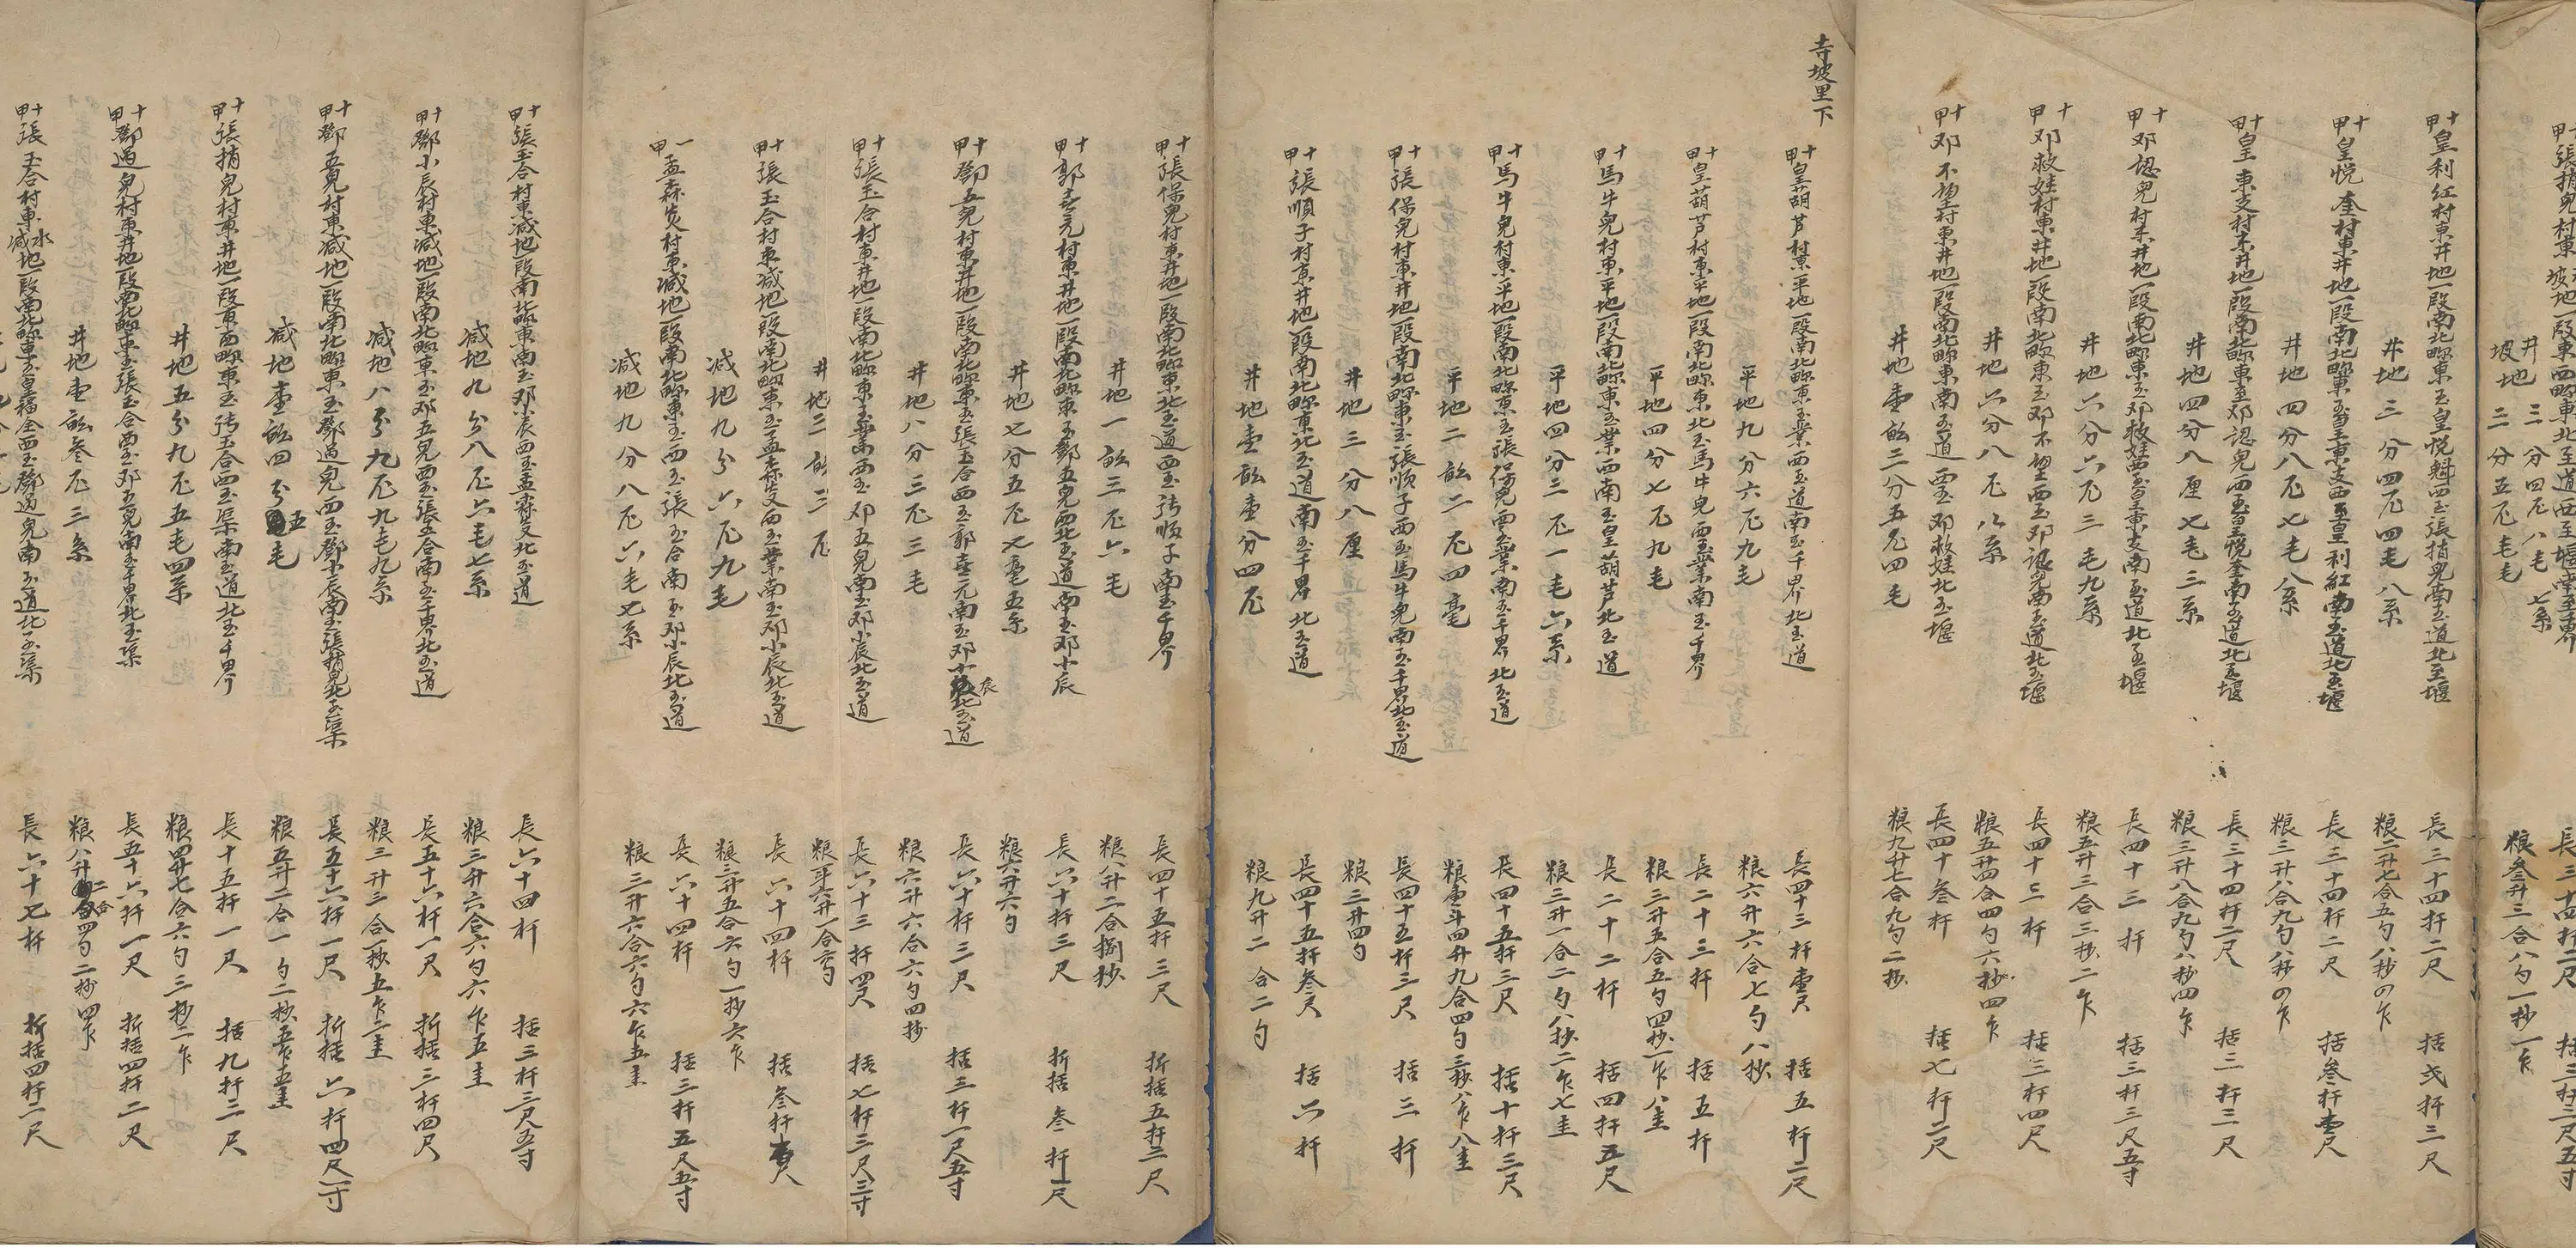 井三分四尺八毛七系
坡地二分五尺毛毛
粮叁升三合八勺一抄一乍
十甲皇利红村東井地一段南北畛東至皇悦魁西至張捎児南至道北至堰
長三十四杆二尺 括弍杆三尺
井地三分四尺四毛八系
粮二升七合五勺八抄四乍
十甲皇悦奎村東井地一段南北畛東至皇東支西至皇利紅南至道北至堰
長三十四杆二尺 括叁杆壹尺
井地四分八尺七毛八系
粮三升八合九勺八抄四乍
十甲皇東支村東井地一段南北畛東至邓認児西至皇悦奎南至道北至堰
長三十四杆二尺 括三杆三尺
井地四分八厘七毛三系
粮三升八合九勺八抄四乍
十甲邓認児村東井地一段南北畛東至邓救娃西至皇東支南至道北至堰
長四十三杆 括三杆三尺五寸
井地六分六尺三毛九系
粮五升三合三抄二乍
十甲邓救娃村東井地一段南北畛東至邓不望西至邓認児南至道北至堰
長四十三杆 括三杆四尺
井地六分八尺八系
粮五升四合四勺六抄四乍
十甲邓不望村東井地一段南北畛東南至道西至邓救娃北至堰
長四十叁杆 括七杆二尺
井地壹畝二分五尺四毛
粮九升七合九勺二抄
寺坡里下
十甲皇葫芦村東平地一段南北畛東至業西至道南至千界北至道
長四十三杆壹尺 括五杆二尺
平地九分六尺九毛
粮六升六合七勺八抄
十甲皇葫芦村東平地一段南北畛東北至馬牛児西至業南至千界
長二十三杆 括五杆
平地四分七尺九毛
粮三升五合五勺四抄一乍八圭
十甲馬牛児村東平地一段南北畛東至業西南至皇葫芦北至道
長二十二杆 括四杆五尺
平地四分二尺一毛六系
粮三升一合二勺八抄二乍七圭
十甲馬牛児村東平地一段南北畛東至張保児西至業南至千界北至道
長四十五杆三尺 括十杆三尺
平地二畝二尺四毫
粮壹斗四升九合四勺三抄八乍八圭
十甲張保児村東井地一段南北畛東至張順子西至馬牛児南至千界北至道
長四十五杆三尺 括三杆
井地三分八厘
粮三升四勺
十甲張順子村東井地一段南北畛東北至道南至千界北至道
長四十五杆叁尺 括六杆
井地壹畝壹分四尺
粮九升二合二勺
十甲張保児村東井地一段南北畛東北至道西至張順子南至千界
長四十五杆三尺 折括五杆三尺
井地一畝三尺六毛
粮八升二合捌抄
十甲郭喜元村東井地一段南北畛東至鄧五児西北至道南至邓小辰
長六十杆三尺 折括叁杆一尺
井地七分五尺七毫五系
粮六升六勺
十甲鄧五児村東井地一段南北畛東至張玉合西至郭喜元南至邓小辰北至道
長六十杆三尺 括三杆一尺五寸
井地八分三尺三毛
粮六升六合六勺四抄
十甲張玉合村東井地一段南北畛東至業西至邓五児南至邓小辰北至道
長六十三杆四尺 括七杆三尺三寸
井地二畝二尺
粮壹斗六升一合六勺
十甲張玉合村東减地一段南北畛東至孟森炭西至業南至邓小辰北至道
長六十四杆 括叁杆壹尺
减地九分六尺九毛
粮三升五合六勺一抄六乍
一甲孟森炭村東减地一段南北畛東至西至張玉合南至邓小辰北至道
長六十四杆 括三杆五尺五寸
减地九分八尺六毛七系
粮三升六合六勺六乍五圭
十甲張玉合村東减地一段南北畛東南至邓小辰西至孟森炭北至道
長六十四杆 括三杆三尺五寸
减地九分八尺六毛七系
粮三升六合六勺六乍五圭
十甲鄧小辰村東减地一段南北畛東至邓五児西至張玉合南至千界北至道
長五十六杆一尺 折括三杆四尺
减地八分九尺九毛九系
粮三升三合一抄五乍二圭
十甲鄧五児村東减地一段南北畛東至鄧過児西至鄧小辰南至張捎児北至渠
長五十六杆一尺 折括六杆四尺一寸
减地壹畝四分五毛
粮五升二合一勺二抄五乍五圭
十甲張捎児村東井地一段東西畛東至張玉合西至渠南至道北至千界
長十五杆一尺 括九杆三尺
井地五分九尺五毛四系
粮四升七合六勺三抄二乍
十甲鄧過児村東井地一段南北畛東至張玉合西至邓五児南至千界北至渠
長五十六杆一尺 折括四杆二尺
井地壹畝叁尺三系
粮八升二合四勺二抄四乍
十甲張玉合村東水减地一段南北畛東至皇福全西至鄧過児南至道北至渠
長六十七杆 折括四杆二尺